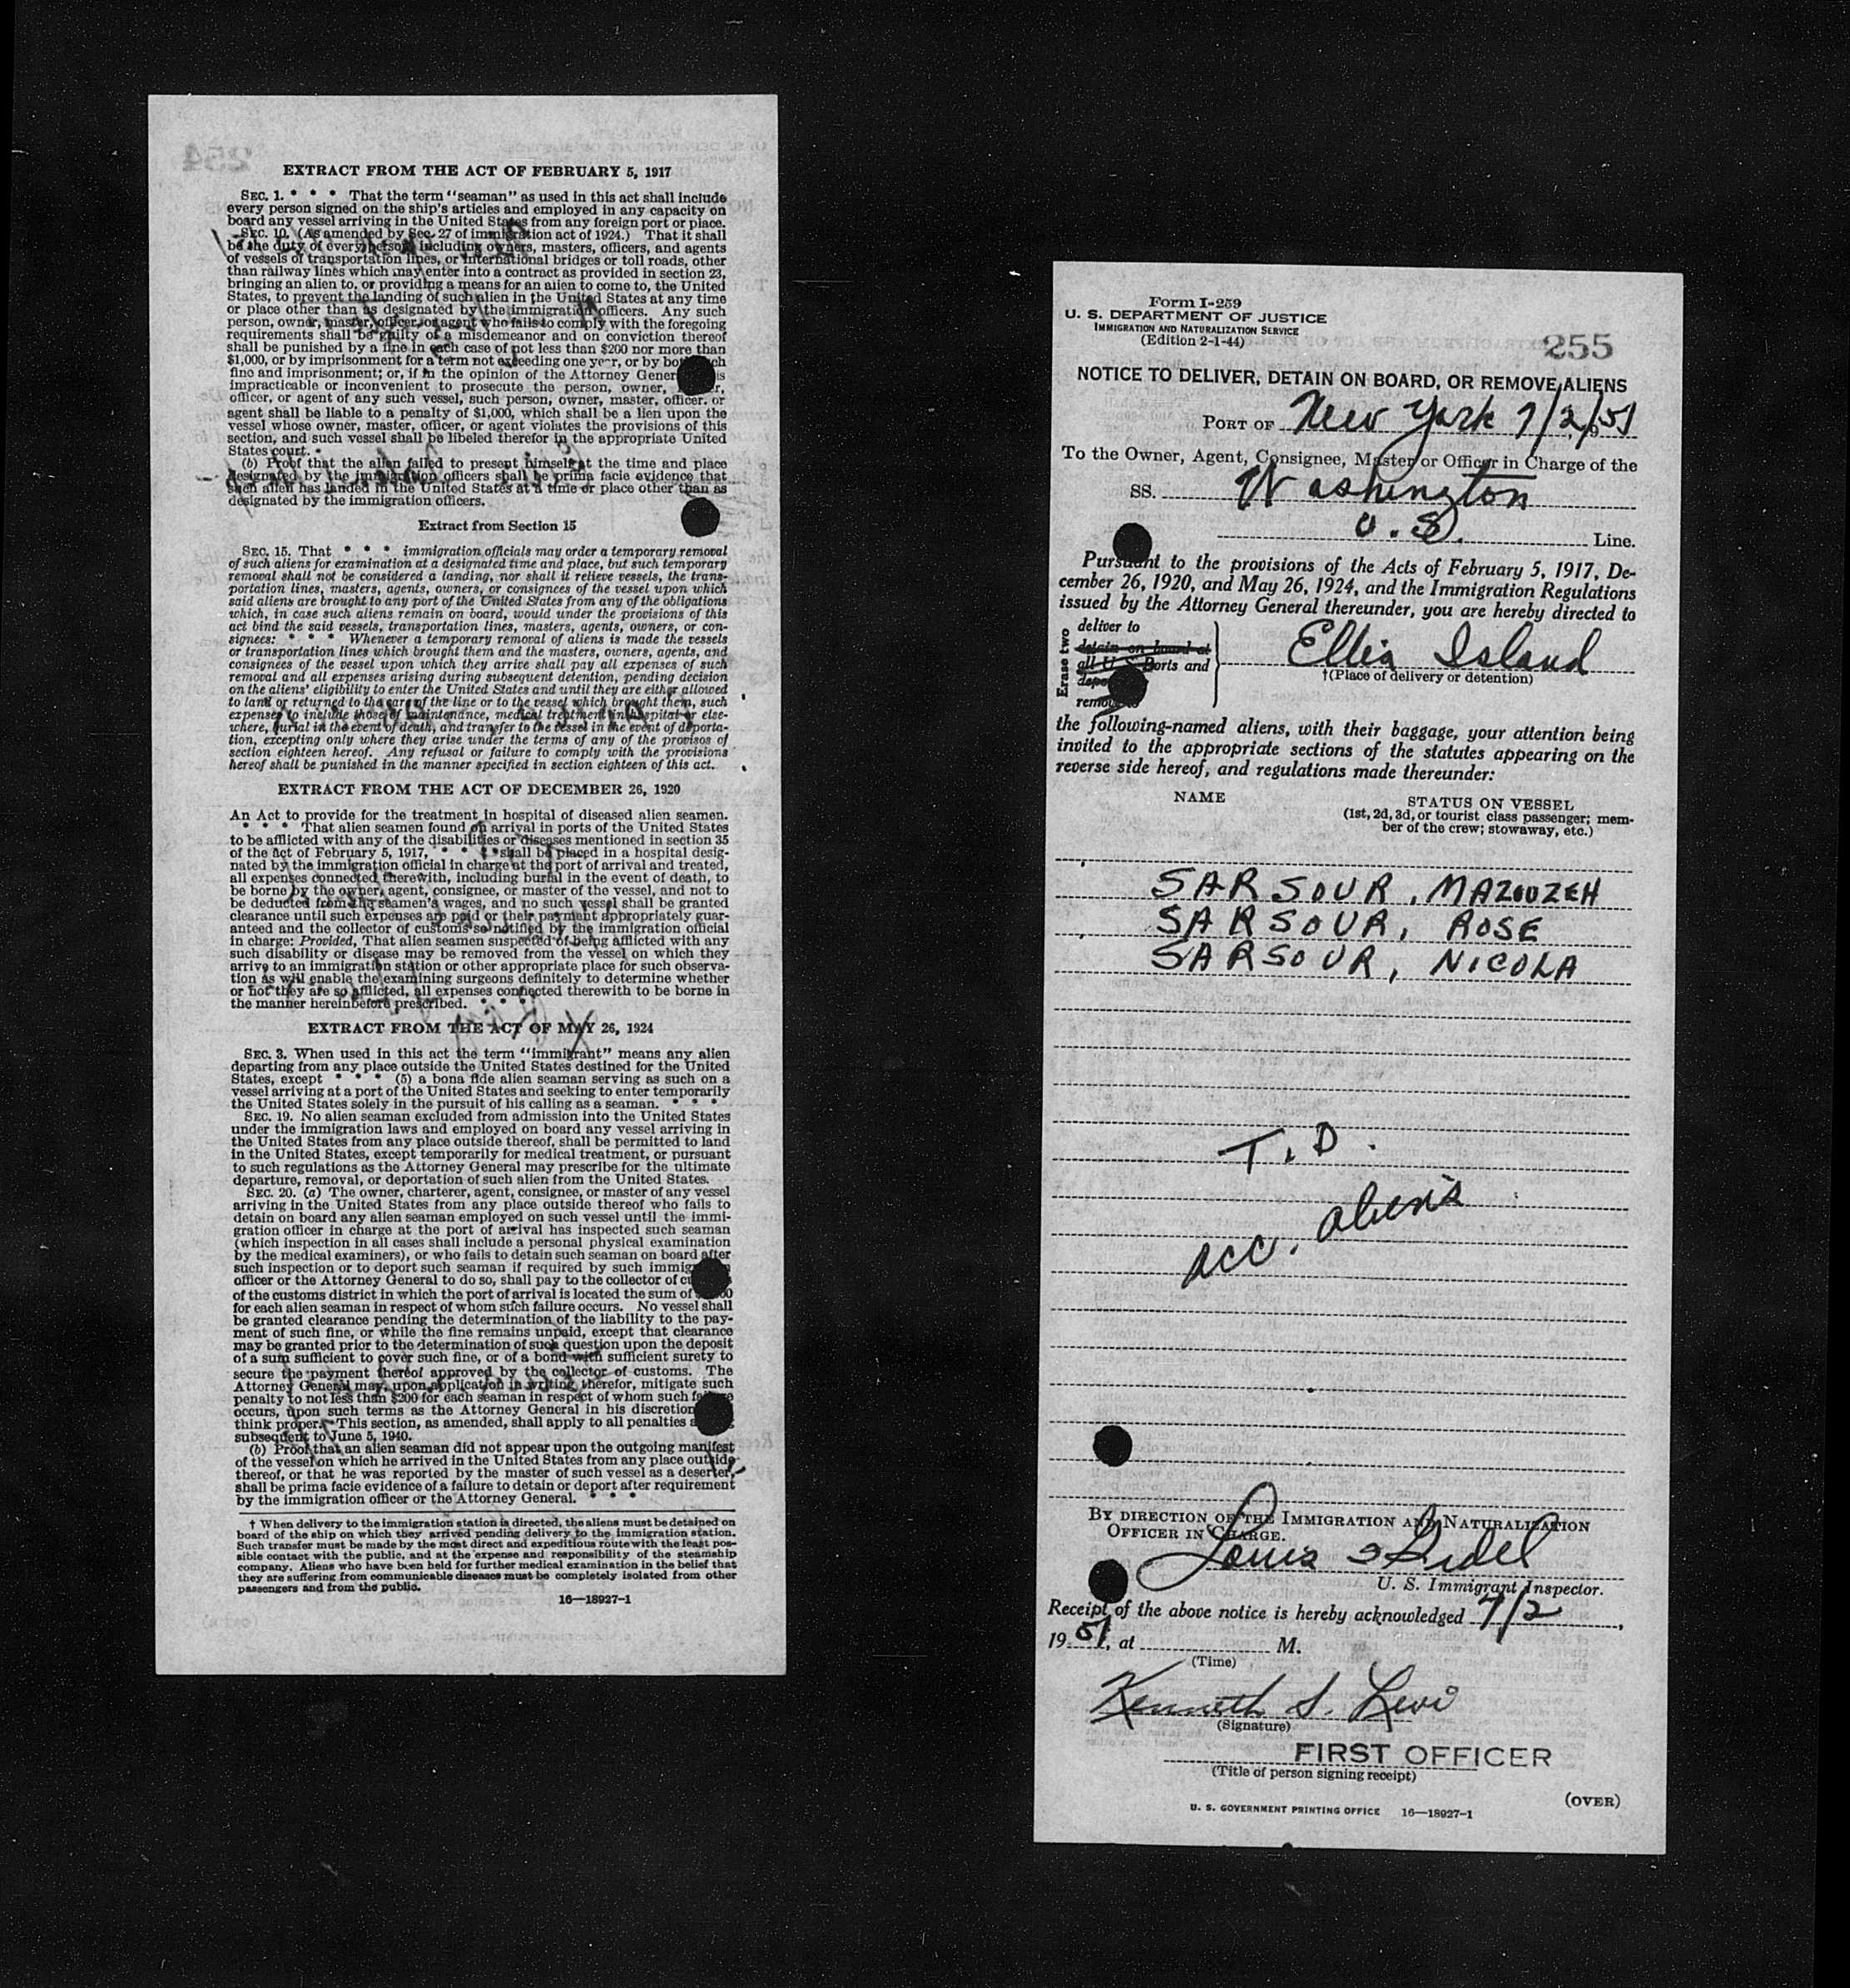 254
EXTRACT FROM THE ACT OF FEBRUARY 5, 1917
SEC. 1. * * * That the term "seaman" as used in this act shall include
every person signed on the ship's articles and employed in any capacity on
board any vessel arriving in the United States from any foreign port or place.
SEC. 10. (As amended by Sec. 27 of immigration act of 1924.) That it shall
be the duty of every person, including owners, masters, officers, and agents
of vessels of transportation lines, or international bridges or toll roads, other
than railway lines which may enter into a contract as provided in section 23,
bringing an alien to, or providing a means for an alien to come to, the United
States, to prevent the landing of such alien in the United States at any time
or place other than as designated by the immigration officers. Any such
person, owner, master, officer, or agent who fails to comply with the foregoing
requirements shall be guilty of a misdemeanor and on conviction thereof
shall be punished by a fine in each case of not less than $200 nor more than
$1,000, or by imprisonment for a term not exceeding one year, or by both such
fine and imprisonment; or, if in the opinion of the Attorney General is
impracticable or inconvenient to prosecute the person, owner,
officer, or agent of any such vessel, such person, owner, master, officer, or
agent shall be liable to a penalty of $1,000, which shall be a lien upon the
vessel whose owner, master, officer, or agent violates the provisions of this
section, and such vessel shall be libeled therefor in the appropriate United
States court.
(b) Proof that the alien failed to present himself at the time and place
designated by the immigration officers shall be prima facie evidence that
such alien has landed in the United States at a time or place other than as
designated by the immigration officers.
Extract from Section 15
SEC. 15. That * * * immigration officials may order a temporary removal
of such aliens for examination at a designated time and place, but such temporary
removal shall not be considered a landing, nor shall it relieve vessels, the trans-
portation lines, masters, agents, owners, or consignees of the vessel upon which
said aliens are brought to any port of the United States from any of the obligations
which, in case such aliens remain on board, would under the provisions of this
act bind the said vessels, transportation lines, masters, agents, owners, or con-
signees: * * * Whenever a temporary removal of aliens is made the vessels
or transportation lines which brought them and the masters, owners, agents, and
consignees of the vessel upon which they arrive shall pay all expenses of such
removal and all expenses arising during subsequent detention, pending decision
on the aliens' eligibility to enter the United States and until they are either allowed
to land or returned to the care of the line or to the vessel which brought them, such
expenses to include those of maintenance, medical treatment in hospital or else-
where, burial in the event of death, and transfer to the vessel in the event of deporta-
tion, excepting only where they arise under the terms of any of the provisos of
section eighteen hereof. Any refusal or failure to comply with the provisions
hereof shall be punished in the manner specified in section eighteen of this act.
EXTRACT FROM THE ACT OF DECEMBER 26, 1920
An Act to provide for the treatment in hospital of diseased alien seamen.
* * * That alien seamen found on arrival in ports of the United States
to be afflicted with any of the disabilities or diseases mentioned in section 35
of the Act of February 5, 1917, * * * shall be placed in a hospital desig-
nated by the immigration official in charge at the port of arrival and treated,
all expenses connected therewith, including burial in the event of death, to
be borne by the owner, agent, consignee, or master of the vessel, and not to
be deducted from the seamen's wages, and no such vessel shall be granted
clearance until such expenses are paid or their payment appropriately guar-
anteed and the collector of customs so notified by the immigration official
in charge: Provided, That alien seamen suspected of being afflicted with any
such disability or disease may be removed from the vessel on which they
arrive to an immigration station or other appropriate place for such observa-
tion as will enable the examining surgeons definitely to determine whether
or not they are so afflicted, all expenses connected therewith to be borne in
the manner hereinbefore prescribed. * * *
EXTRACT FROM THE ACT OF MAY 26, 1924
SEC. 3. When used in this act the term "immigrant" means any alien
departing from any place outside the United States destined for the United
States, except * * * (5) a bona fide alien seaman serving as such on a
vessel arriving at a port of the United States and seeking to enter temporarily
the United States solely in the pursuit of his calling as a seaman. * * *
SEC. 19. No alien seaman excluded from admission into the United States
under the immigration laws and employed on board any vessel arriving in
the United States from any place outside thereof, shall be permitted to land
in the United States, except temporarily for medical treatment, or pursuant
to such regulations as the Attorney General may prescribe for the ultimate
departure, removal, or deportation of such alien from the United States.
SEC. 20. (a) The owner, charterer, agent, consignee, or master of any vessel
arriving in the United States from any place outside thereof who fails to
detain on board any alien seaman employed on such vessel until the immi-
gration officer in charge at the port of arrival has inspected such seaman
(which inspection in all cases shall include a personal physical examination
by the medical examiners), or who fails to detain such seaman on board after
such inspection or to deport such seaman if required by such immigration
officer or the Attorney General to do so, shall pay to the collector of customs
of the customs district in which the port of arrival is located the sum of
for each alien seaman in respect of whom such failure occurs. No vessel shall
be granted clearance pending the determination of the liability to the pay-
ment of such fine, or while the fine remains unpaid, except that clearance
may be granted prior to the determination of such question upon the deposit
of a sum sufficient to cover such fine, or of a bond with sufficient surety to
secure the payment thereof approved by the collector of customs. The
Attorney General may, upon application in writing therefor, mitigate such
penalty to not less than $200 for each seaman in respect of whom such failure
occurs, upon such terms as the Attorney General in his discretion
think proper. This section, as amended, shall apply to all penalties
subsequent to June 5, 1940.
(b) Proof that an alien seaman did not appear upon the outgoing manifest
of the vessel on which he arrived in the United States from any place outside
thereof, or that he was reported by the master of such vessel as a deserter,
shall be prima facie evidence of a failure to detain or deport after requirement
by the immigration officer or the Attorney General. * * *
† When delivery to the immigration station is directed, the aliens must be detained on
board of the ship on which they arrived pending delivery to the immigration station.
Such transfer must be made by the most direct and expeditious route with the least pos-
sible contact with the public, and at the expense and responsibility of the steamship
company. Aliens who have been held for further medical examination in the belief that
they are suffering from communicable diseases must be completely isolated from other
passengers and from the public.
16—18927-1
Form I-259
U. S. DEPARTMENT OF JUSTICE
IMMIGRATION AND NATURALIZATION SERVICE
(Edition 2-1-44)
255
NOTICE TO DELIVER, DETAIN ON BOARD, OR REMOVE ALIENS
PORT OF New York 7/2/1951
To the Owner, Agent, Consignee, Master or Officer in Charge of the
SS. Washington
U.S. Line.
Pursuant to the provisions of the Acts of February 5, 1917, De-
cember 26, 1920, and May 26, 1924, and the Immigration Regulations
issued by the Attorney General thereunder, you are hereby directed to
Erase two
deliver to
detain on board at
all U. S. Ports and
remove to
Ellis Island
†(Place of delivery or detention)
the following-named aliens, with their baggage, your attention being
invited to the appropriate sections of the statutes appearing on the
reverse side hereof, and regulations made thereunder:
NAME STATUS ON VESSEL
(1st, 2d, 3d, or tourist class passenger; mem-
ber of the crew; stowaway, etc.)
SARSOUR, MAZOUZEH
SARSOUR, ROSE
SARSOUR, NICOLA
T.D.
acc. aliens
BY DIRECTION OF THE IMMIGRATION AND NATURALIZATION
OFFICER IN CHARGE.
Louis
U. S. Immigrant Inspector.
Receipt of the above notice is hereby acknowledged 7/2,
1951, at M.
(Time)
Kenneth S. Levi
(Signature)
FIRST OFFICER
(Title of person signing receipt)
(OVER)
U. S. GOVERNMENT PRINTING OFFICE 16—18927-1